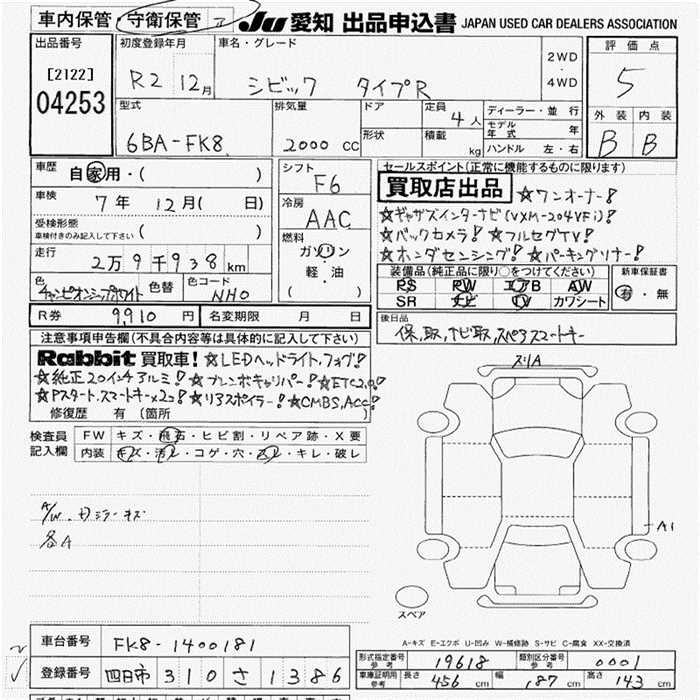 車内保管・守衛保管 JU 愛知 出品申込書 JAPAN USED CAR DEALERS ASSOCIATION
出品番号
[2122]
04253
初度登録年月
R2 12月
車名・グレード
シビック タイプR
2WD
・
4WD
評価点
5
外装 内装
B B
型式
6BA-FK8
排気量
2000 CC
ドア
形状
定員
4人
積載
kg
ディーラー・並行
モデル年式 年
ハンドル 左・右
車歴
自家用・( )
車検
7年 12月( 日)
受検形態
車検付きのみ記入して下さい ( )
走行
2万9千938km
色
チャンピオンシップホワイト
色替
色コード
NH0
シフト
F6
冷房
AAC
燃料
ガソリン
・
軽・油
( )
R券 9,910円 名変期限 月 日
セールスポイント(正常に機能するものに限ります)
買取店出品 ☆ワンオーナー!
☆ギャザズインターナビ(VXM-204VFi)!
☆バックカメラ! ☆フルセグTV!
☆ホンダセンシング! ☆パーキングリナー!
装備品(純正品に限り○をつけてください)
PS PW エアB AW
SR ナビ TV カワシート
新車保証書
有・無
後日品
保、取、ナビ取、スペアスマートキー
注意事項申告欄(不具合内容等は具体的に記入して下さい)
Rabbit 買取車! ☆LEDヘッドライト、フォグ!
☆純正20インチアルミ! ☆ブレンボキャリパー! ☆ETC2.0!
☆Pスタート、スマートキー×2コ! ☆リアスポイラー! ☆CMBS,ACC!
修復歴 有 (箇所
検査員記入欄
FW キズ・飛石・ヒビ割・リペア跡・X要
内装 キズ・汚レ・コゲ・穴・スレ・キレ・破レ
A/W、ミラーキズ
各A
スリA
A1
スペア
A-キズ E-エクボ U-凹み W-補修跡 S-サビ C-腐食 XX-交換済
車台番号 FK8-1400181
登録番号 四日市 310 さ 1386
形式指定番号 参考 19618 類別区分番号 参考 0001
車庫証明用 参考 長さ 456 cm 幅 187 cm 高さ 143 cm